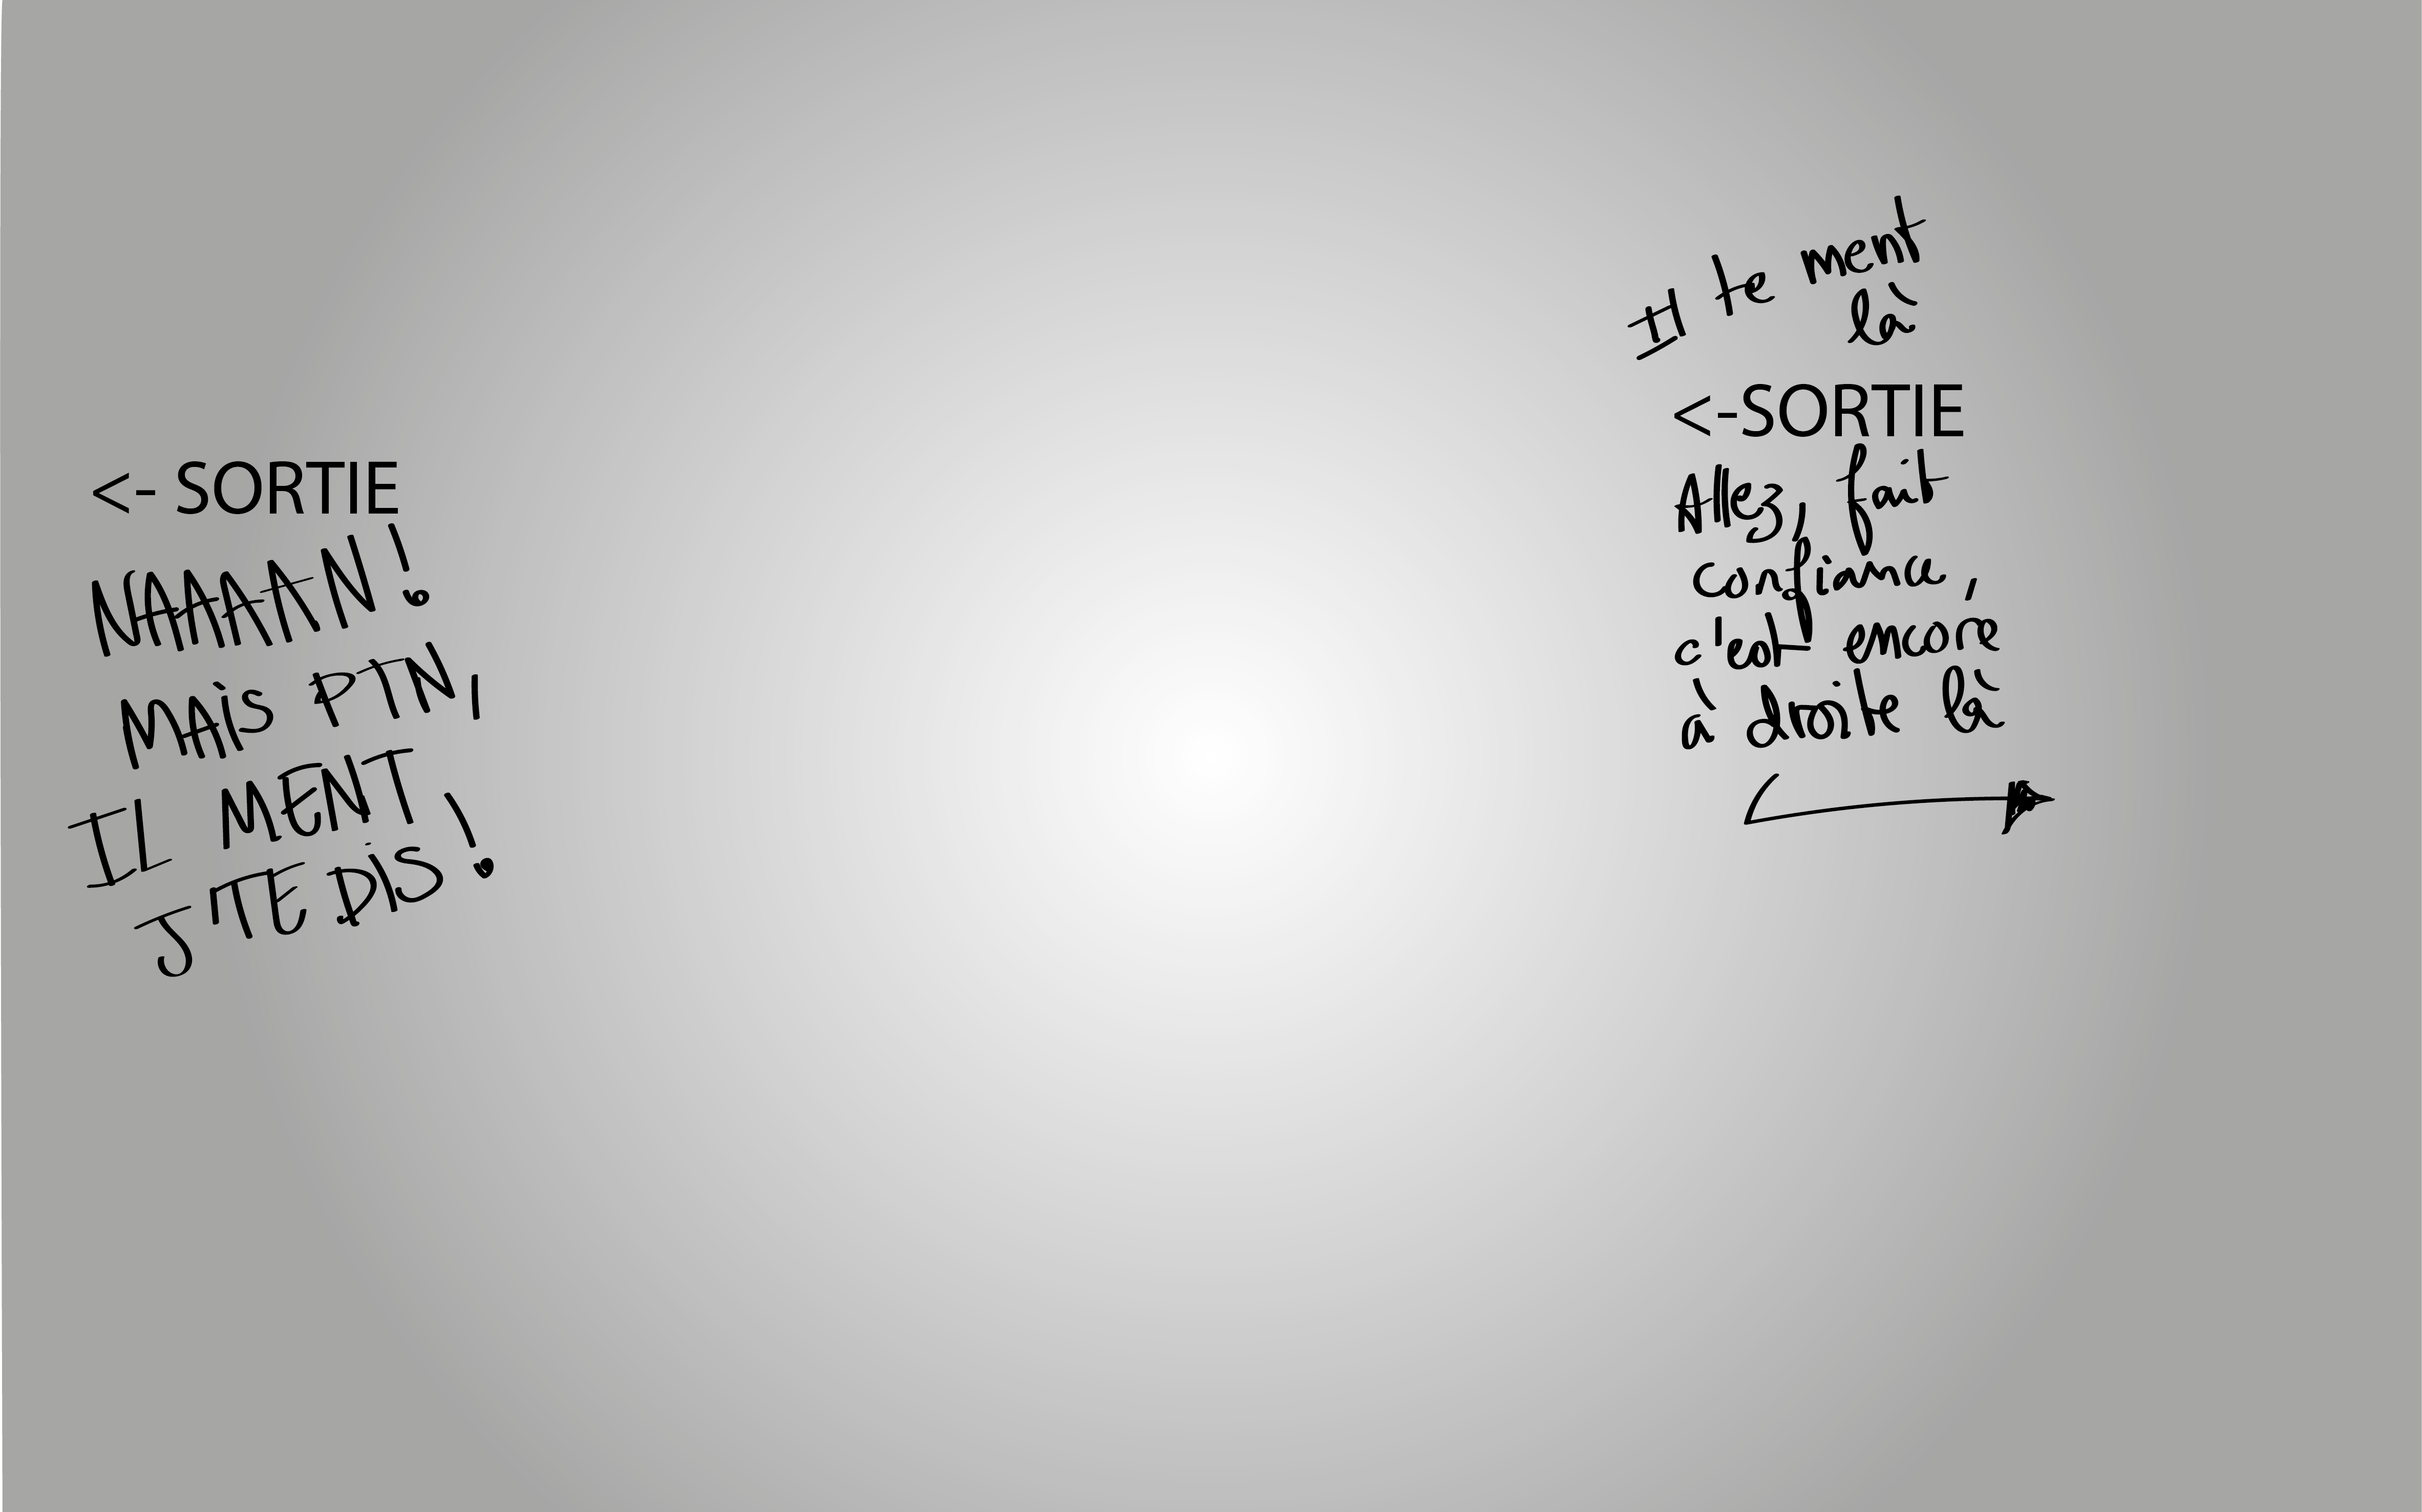 <- SORTIE
NAAAAN!
MAiS PTN,
IL MENT
J'TE DiS!
Il te ment
là
<-SORTIE
Allez, fait
confiance,
c'est encore
à droite là